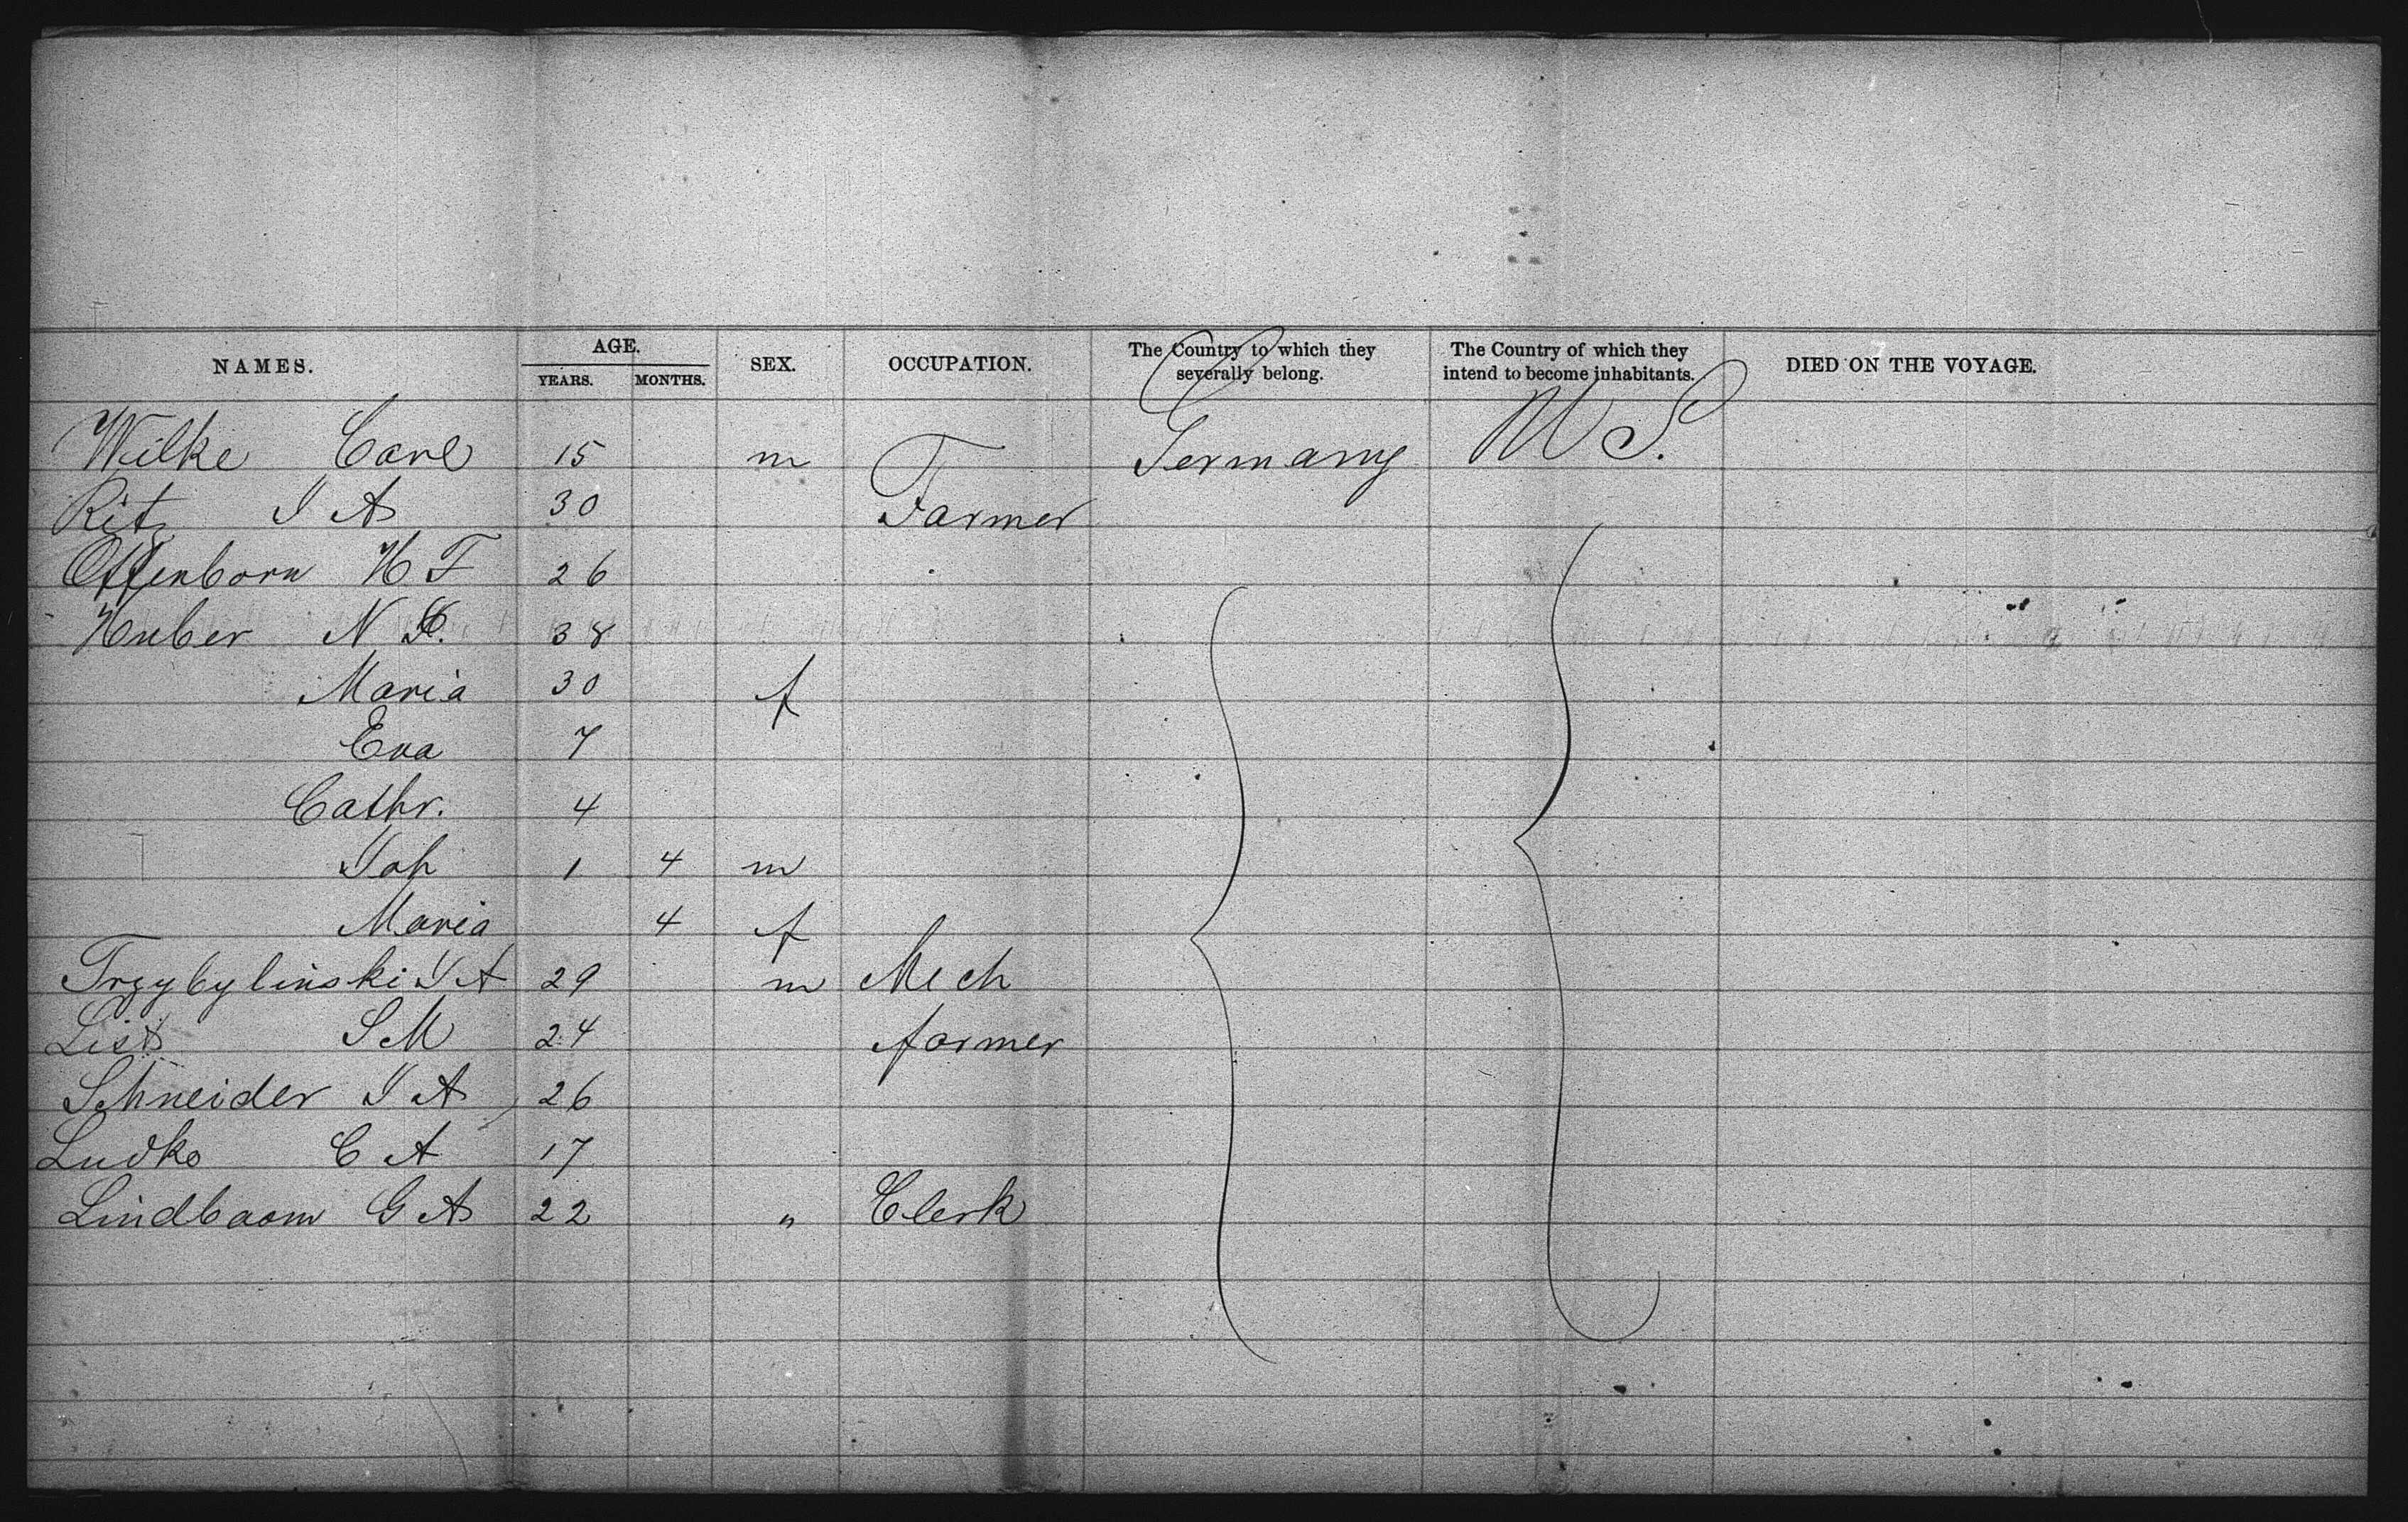 NAMES. AGE. YEARS. MONTHS. SEX. OCCUPATION. The Country to which they severally belong. The Country of which they intend to become inhabitants. DIED ON THE VOYAGE.
Wilke Carl 15 m Germany U S.
Ritz J A 30 Farmer
Offenborn H F 26
Huber N 38
Maria 30 f
Eva 7
Cathr. 4
Joh 1 4 m
Maria 4 f
Trzybylinski J A 29 m Mech
List S M 24 farmer
Schneider J A 26
Ludko C A 17
Lindbaom G A 22 " Clerk